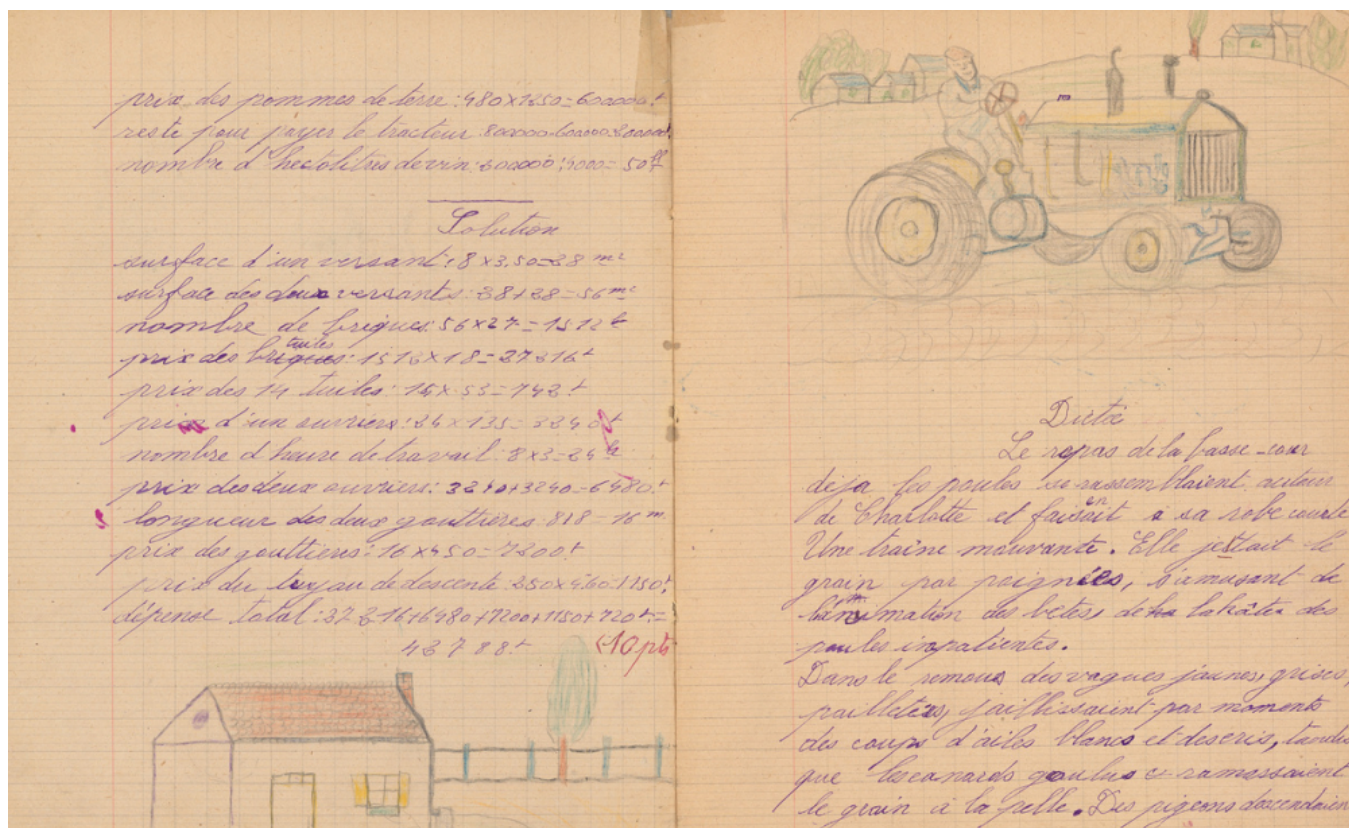 prix des pommes de terre : 480 x 1250 = 600000 f
reste pour payer le tracteur : 800000 - 600000 = 200000 f
nombre d'hectolitres de vin : 200000 : 4000 = 50
Solution
surface d'un versant : 8 x 3,50 = 28 m²
surface des deux versants : 28 + 28 = 56 m²
nombre de briques : 56 x 27 = 1512 t
tuiles
prix des briques : 1512 x 18 = 27216 f
prix des 14 tuiles : 14 x 53 = 742 f
prix d'un ouvriers : 24 x 135 = 3240 f
nombre d'heure de travail : 8 x 3 = 24 h
prix des deux ouvriers : 3240 + 3240 = 6480 f
longueur des deux gouttières : 8 + 8 = 16 m
prix des gouttières : 16 x 450 = 7200 f
prix du tuyau de descente : 250 x 4,60 = 1150 f
dépense total : 27216 + 6480 + 7200 + 1150 + 720 f =
43788 f <10 pts
Dictée
Le repas de la basse-cour
déja les poules se rassemblaient autour
de Charlotte et faisaient à sa robe courte
Une traîne mouvante. Elle jettait le
grain par poignées, s'amusant de
l'animation des betes, de la hâte des
poules inpatientes.
Dans le remous des vagues jaunes, grises,
pailletées, jaillissaient par moments
des coups d'ailes blancs et des cris, tandis
que les canards goulus ramassaient
le grain à la pelle. Des pigeons descendaien